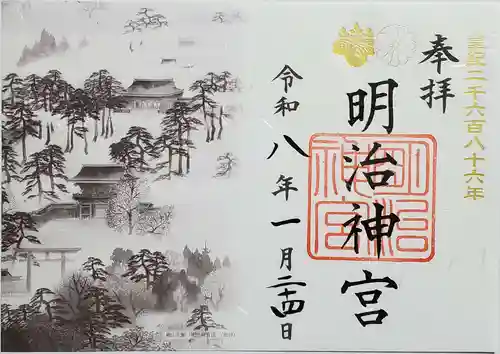 皇紀二千六百八十六年
奉拝
明治神宮
明治
神宮
令和八年一月二十四日